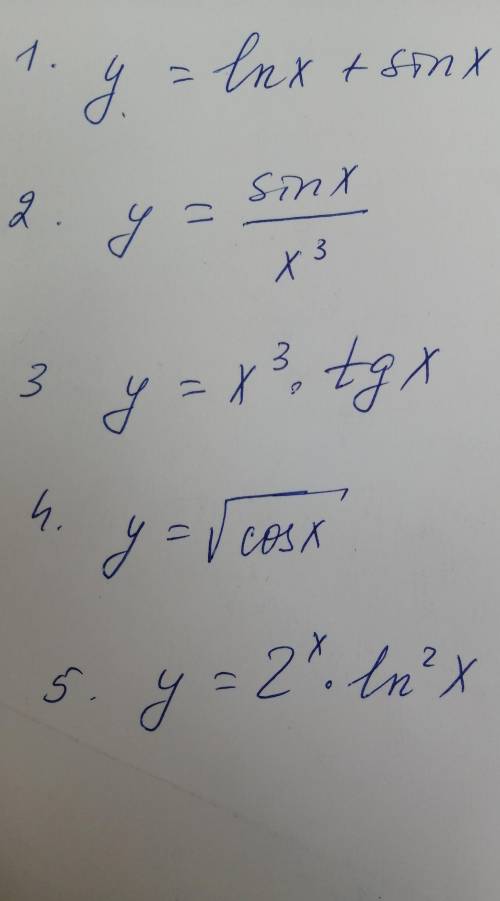 1. y = ln x + sin x
2. y = sin x / x³
3 y = x³ · tg x
4. y = √cos x
5. y = 2ˣ · ln² x